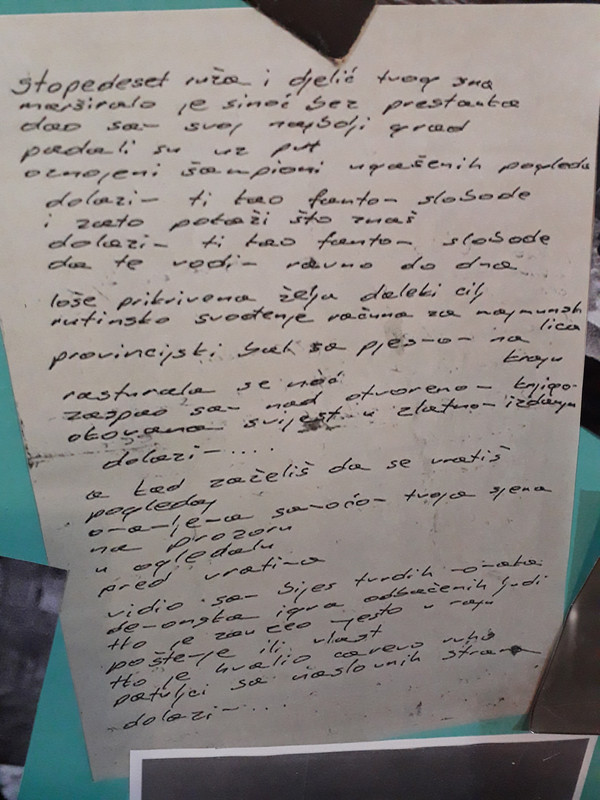 stopedeset ruža i djelić tvog sna
marširalo je sinoć bez prestanka
dao sam svoj najbolji grad
padali su uz put
oznojeni šampioni ugašenih pogleda
dolazim ti kao fantom slobode
i zato pokaži što znaš
dolazim ti kao fantom slobode
da te vodim ravno do dna
loše prikrivena želja daleki cilj
rutinsko svođenje računa za
lica
provincijski bal sa pjesmom na
kraju
rasturala se noć
zaspao sam nad otvorenom knjigom
okovana svijest u zlatnom izdanju
dolazim....
a kad zaželiš da se vratiš
pogledaj
omamljena samoćom tvoja sjena
na prozoru
u ogledalu
pred vratima
vidio sam bijes tvrdih momaka
demonska igra odbačenih ljudi
tko je zauzeo mjesto u raju
poštenje ili vlast
tko je hvalio carevo ruho
patuljci sa naslovnih strana
dolazim....